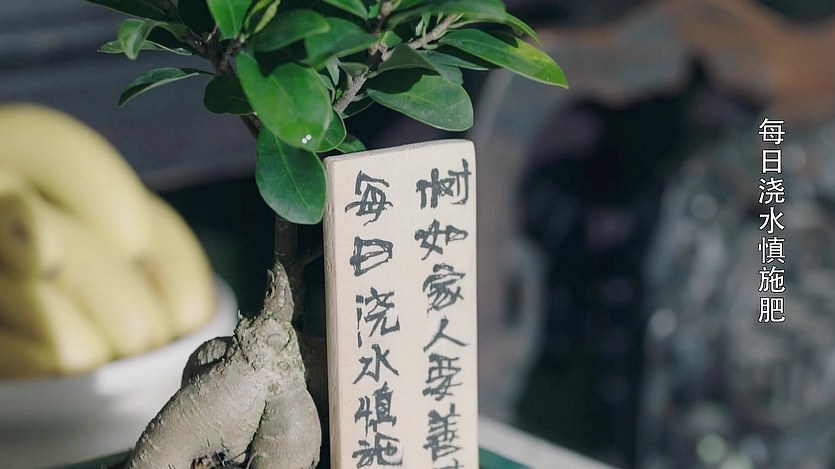 树如家人要善
每日浇水慎施
每日浇水慎施肥